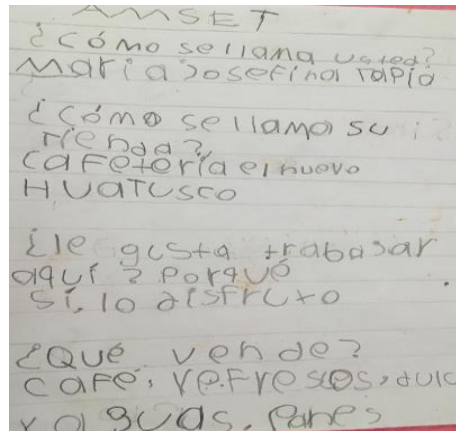 AMSET
¿cómo se llama usted?
María Josefina Tapia
¿cómo se llama su
tienda?
cafetería el nuevo
HUATUSCO
¿le gusta trabajar
aquí? Porqué
sí, lo disfruto
¿Qué vende?
café, refrescos, dulc
y aguas, Panes